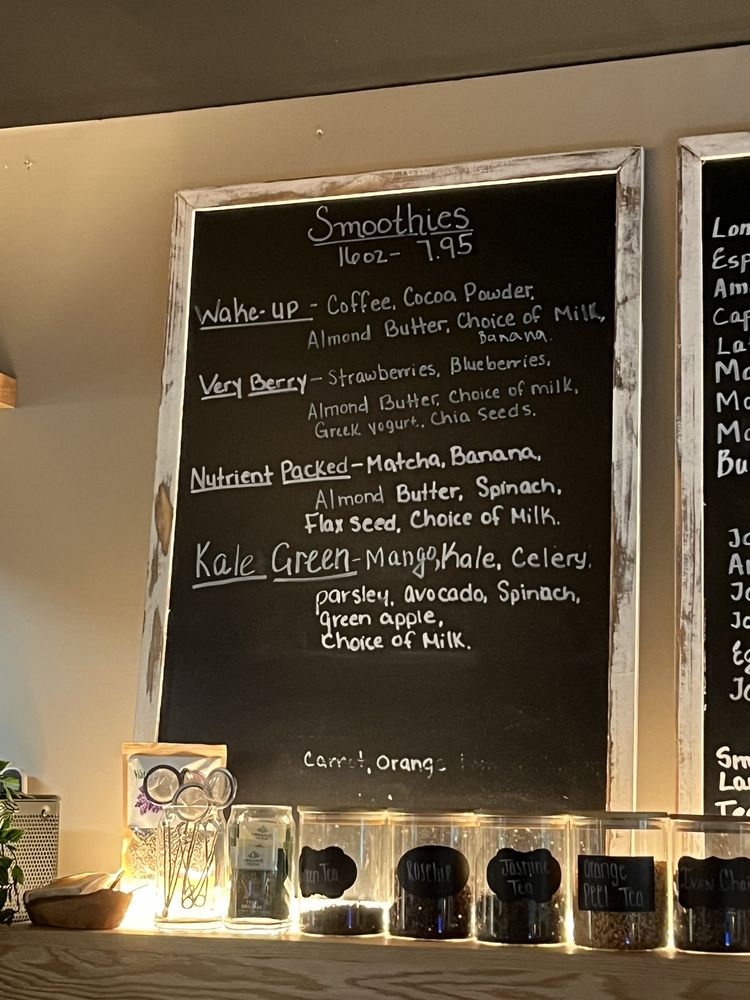 Smoothies
16oz- 7.95
Wake-up - Coffee, Cocoa Powder,
Almond Butter, Choice of Milk,
Banana.
Very Berry - Strawberries, Blueberries,
Almond Butter, Choice of milk,
Greek yogurt, Chia Seeds.
Nutrient Packed - Matcha, Banana,
Almond Butter, Spinach,
Flax seed, Choice of Milk.
Kale Green - Mango, Kale, Celery,
parsley, avocado, Spinach,
green apple,
Choice of Milk.
Carrot, Orange
Lon
Esp
Am
Cap
Lat
Mo
Mo
Mo
Bu
Ja
Ar
Ja
Ja
Eg
Ja
Sm
Lar
Tea
en Tea
Rosehip
Jasmine
Tea
Orange
Peel Tea
Ivan Cha